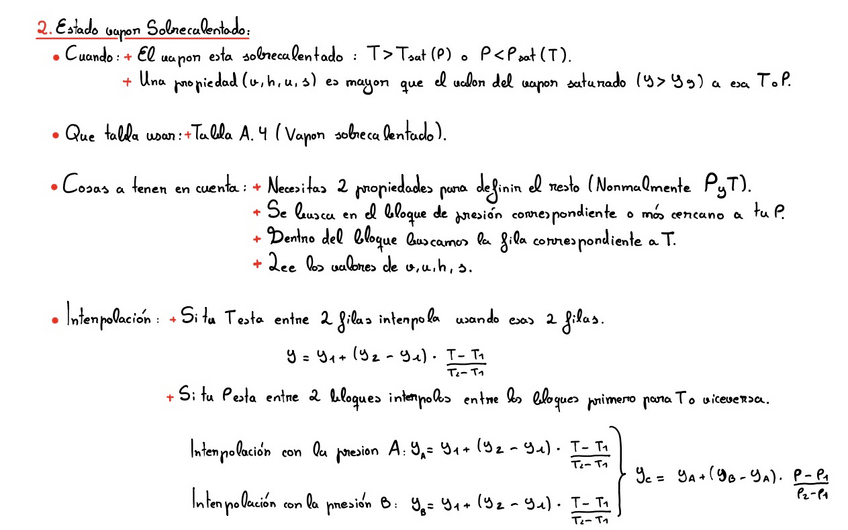 2. Estado vapor Sobrecalentado:
• Cuando: + El vapor esta sobrecalentado : T > Tsat (P) o P < Psat (T).
+ Una propiedad (v, h, u, s) es mayor que el valor del vapor saturado (y > yg) a esa T o P.
• Que tabla usar: + Tabla A.4 (Vapor sobrecalentado).
• Cosas a tener en cuenta: + Necesitas 2 propiedades para definir el resto (Normalmente P y T).
+ Se busca en el bloque de presión correspondiente o más cercano a tu P.
+ Dentro del bloque buscamos la fila correspondiente a T.
+ Lee los valores de v, u, h, s.
• Interpolación: + Si tu T esta entre 2 filas interpola usando esas 2 filas.
y = y1 + (y2 - y1) · (T - T1)/(T2 - T1)
+ Si tu P esta entre 2 bloques interpolas entre los bloques primero para T o viceversa.
Interpolación con la presion A: yA = y1 + (y2 - y1) · (T - T1)/(T2 - T1)
yC = yA + (yB - yA) · (P - P1)/(P2 - P1)
Interpolación con la presión B: yB = y1 + (y2 - y1) · (T - T1)/(T2 - T1)